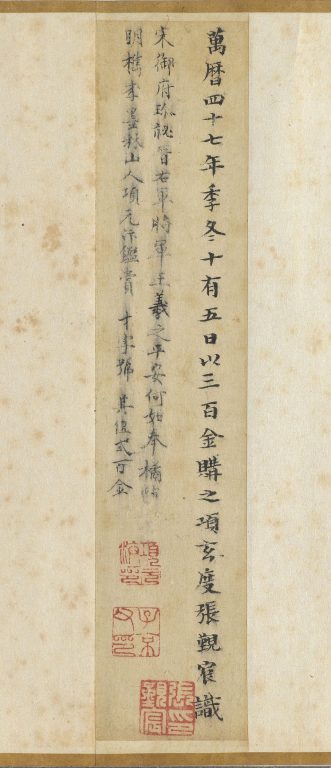 萬曆四十七年季冬十有五日以三百金購之項玄度張覲宸識
宋御府珍秘晉右軍將軍王羲之平安何如奉橘帖
明檇李墨林山人項元汴鑑賞 其值弍百金
項元汴印
子京父印
張覲宸印